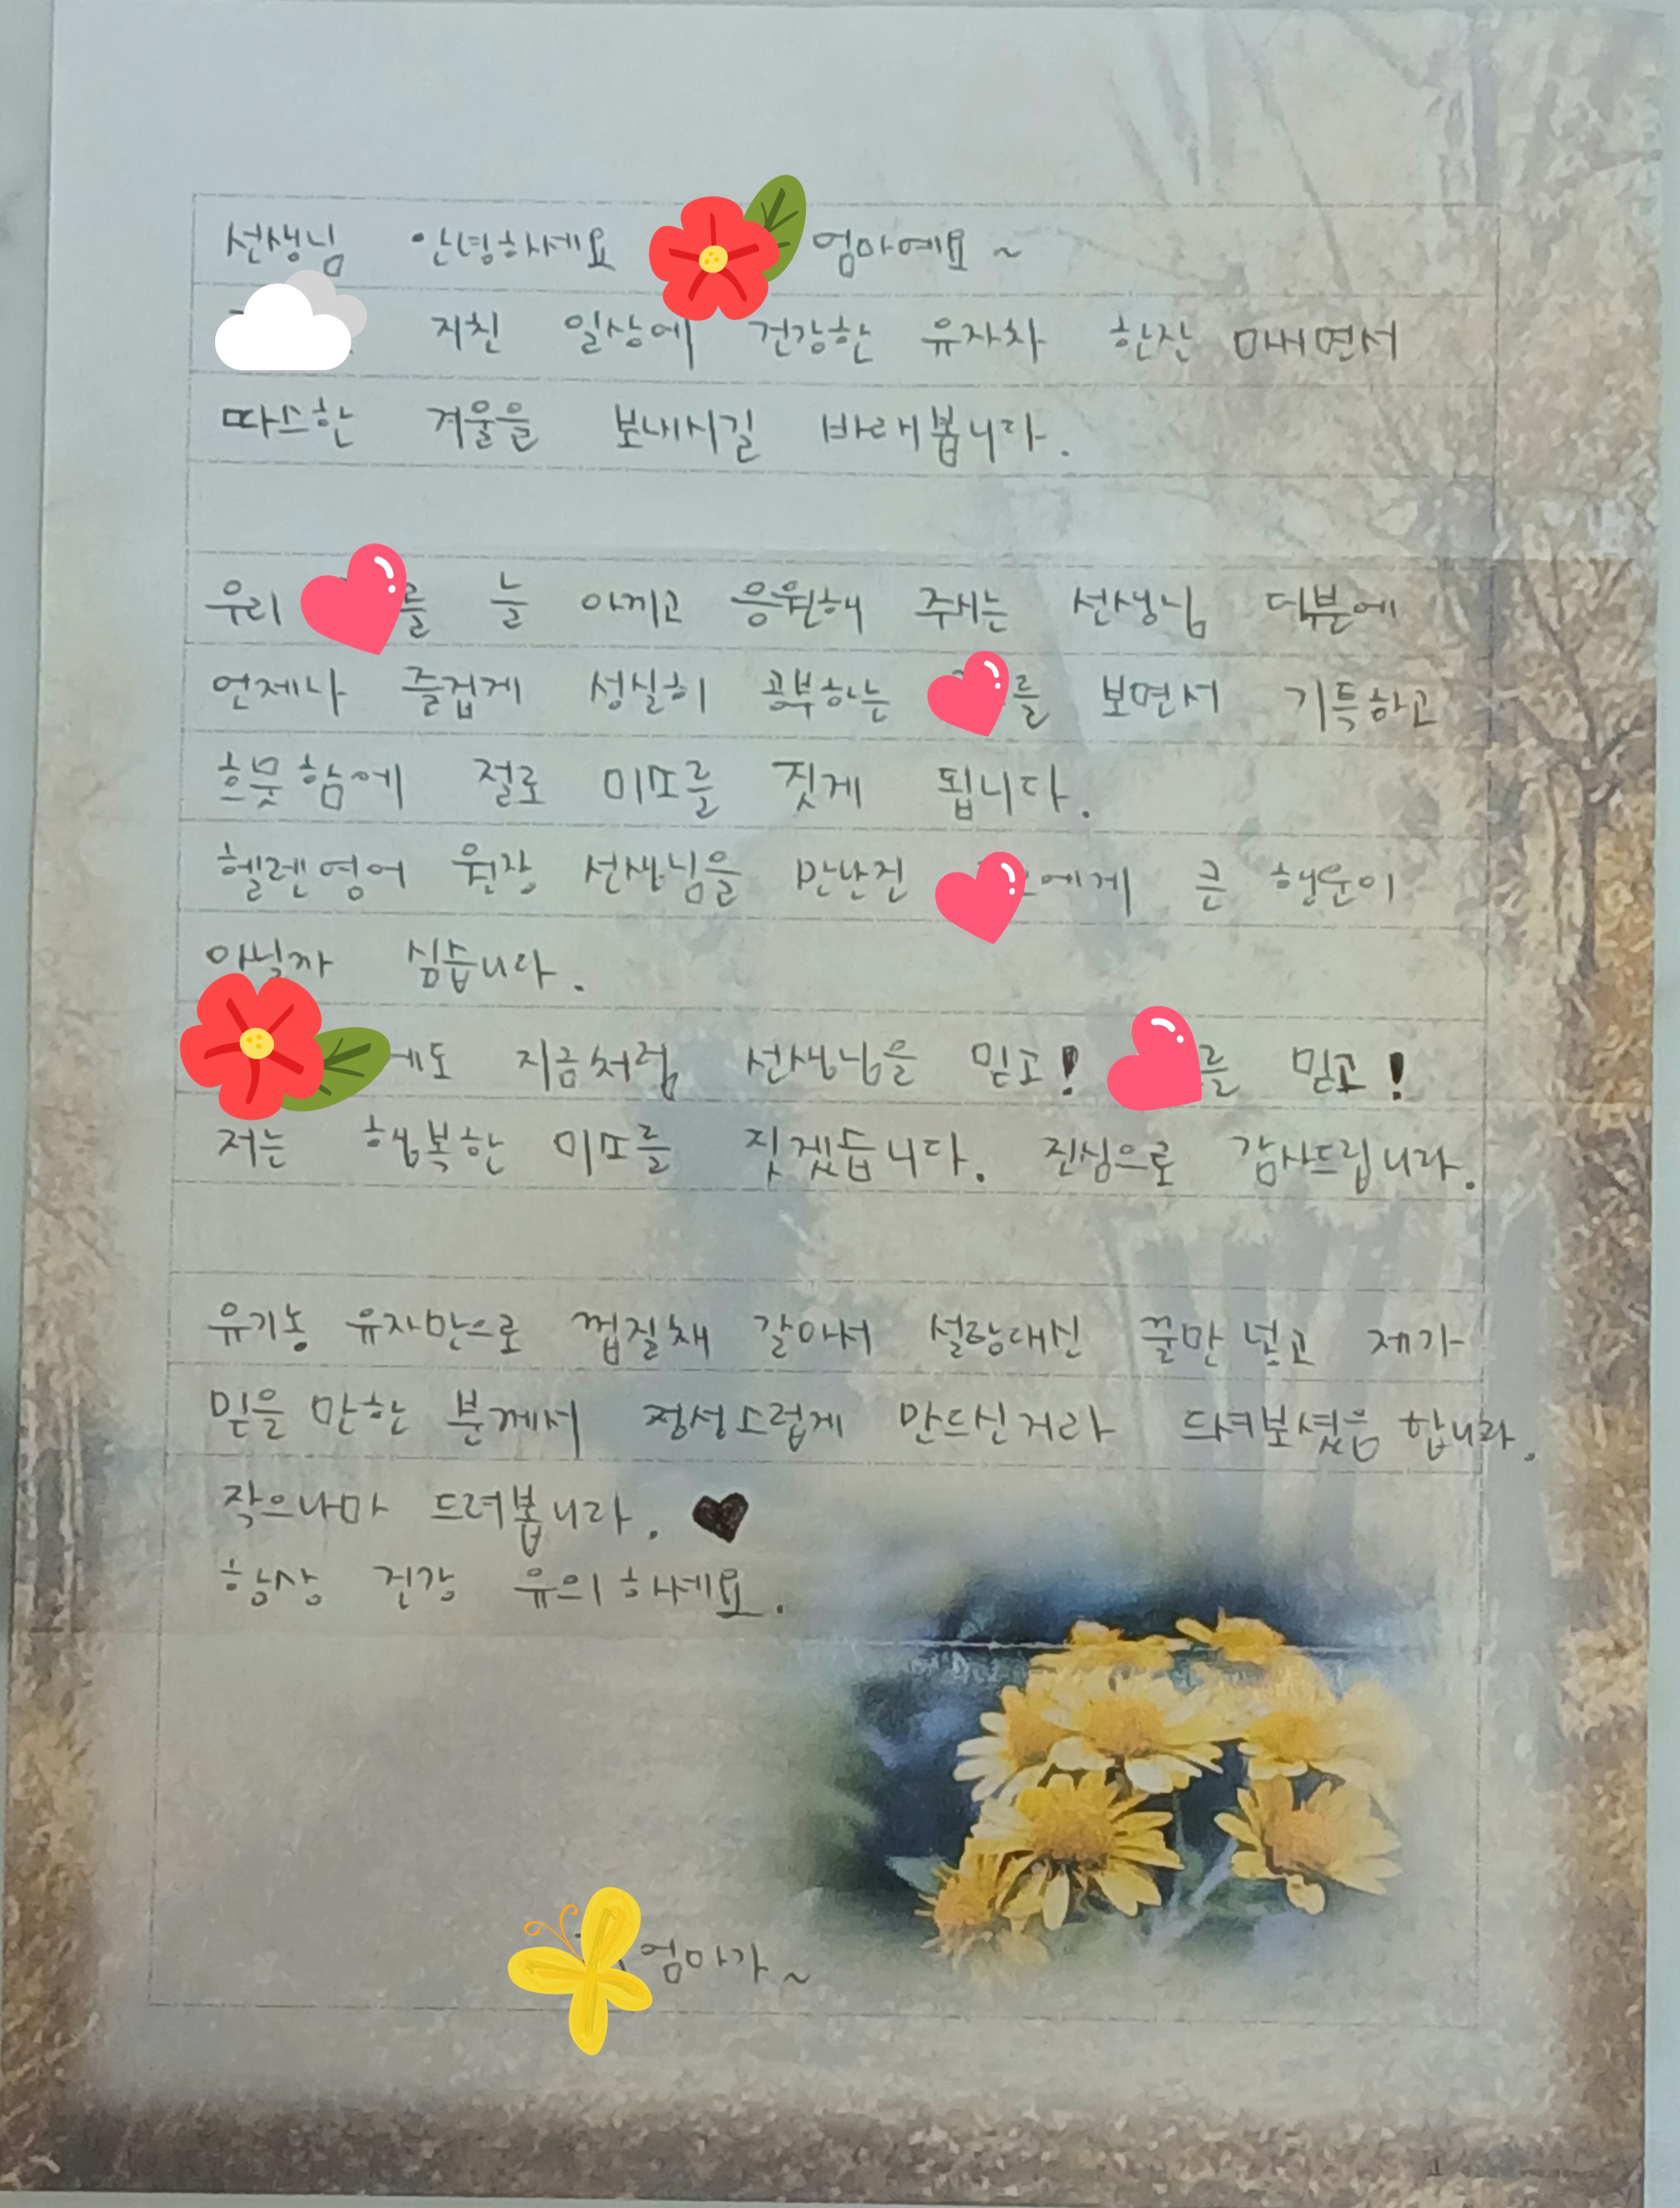 선생님 안녕하세요 엄마예요~
지친 일상에 건강한 유자차 한잔 마시면서
따스한 겨울을 보내시길 바래봅니다.
우리 를 늘 아끼고 응원해 주시는 선생님 덕분에
언제나 즐겁게 성실히 공부하는 를 보면서 기특하고
흐뭇함에 절로 미소를 짓게 됩니다.
헬렌영어 원장 선생님을 만난건 에게 큰 행운이
아닐까 싶습니다.
에도 지금처럼 선생님을 믿고! 를 믿고!
저는 행복한 미소를 짓겠습니다. 진심으로 감사드립니다.
유기농 유자만으로 껍질채 갈아서 설탕대신 꿀만 넣고 제가
믿을 만한 분께서 정성스럽게 만드신거라 드셔보셨음 합니다.
작으나마 드려봅니다. ♥
항상 건강 유의하세요.
엄마가~